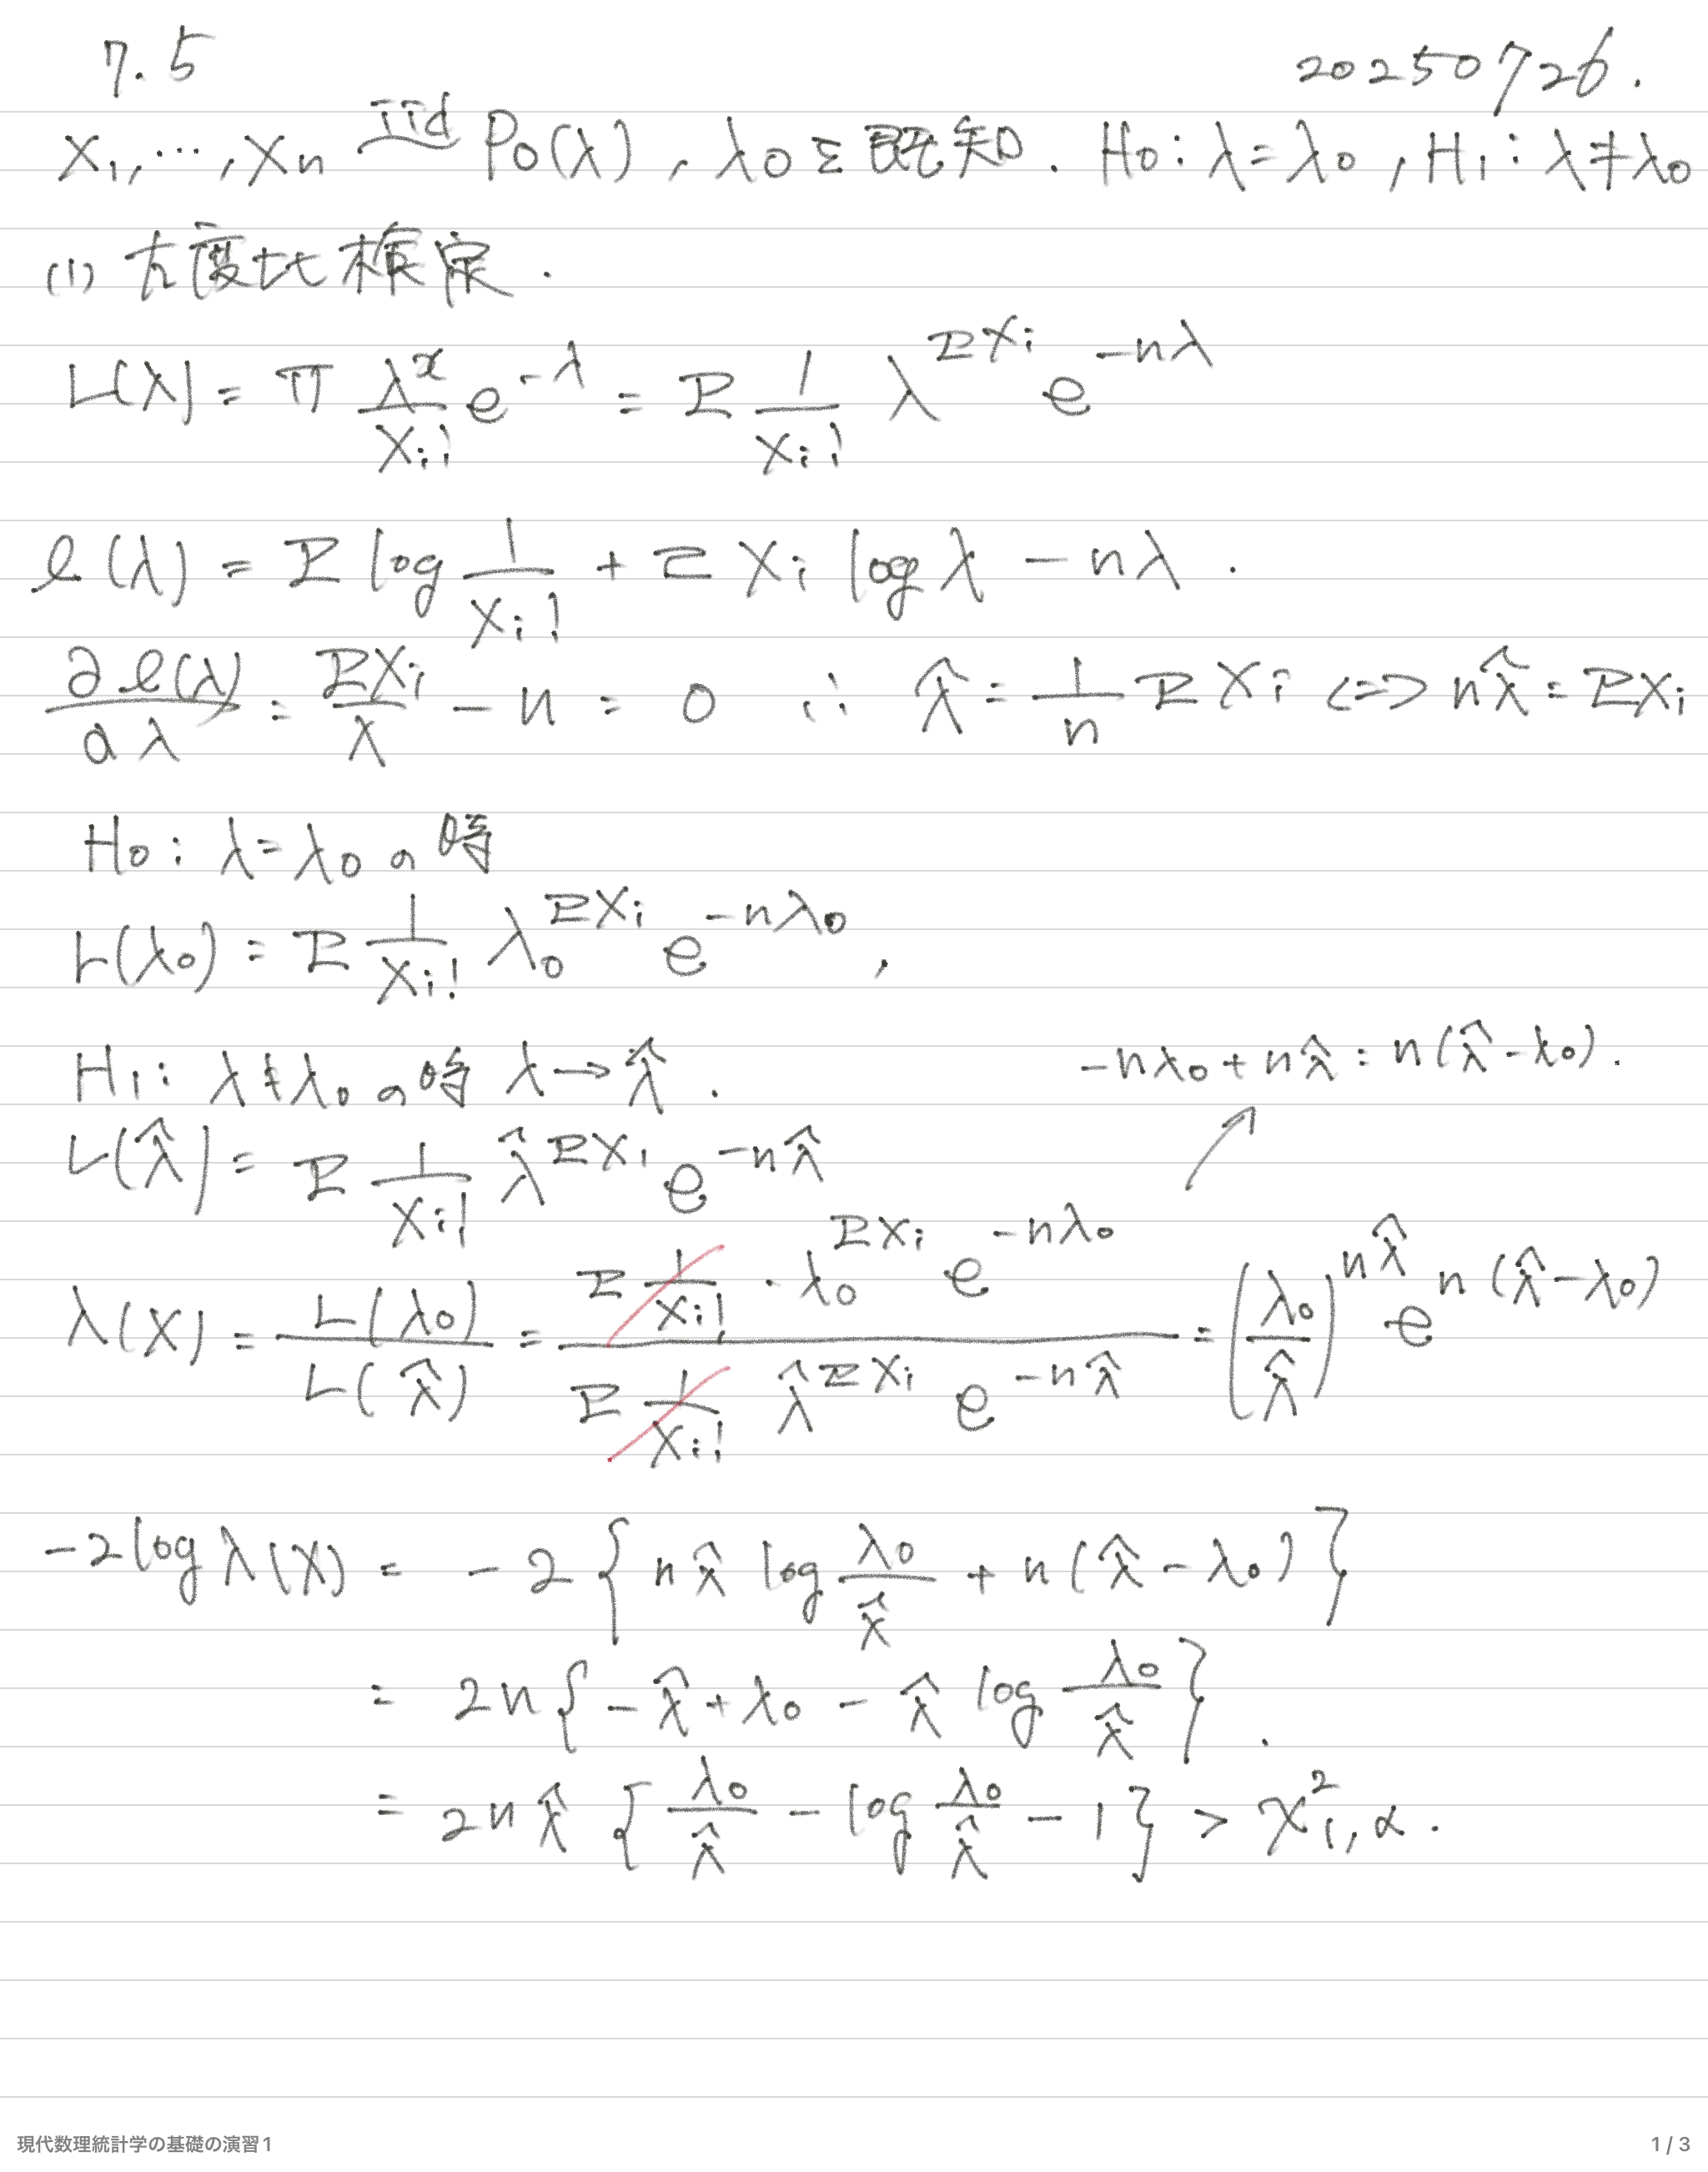 7.5
20250726.
X₁,…,Xₙ iid~ Po(λ), λ₀を既知. H₀: λ=λ₀, H₁: λ≠λ₀
(1) 尤度比検定.
L(λ) = Π λ^x/Xi! e^{-λ} = Σ 1/Xi! λ^{ΣXi} e^{-nλ}
ℓ(λ) = Σ log 1/Xi! + Σ Xi log λ - nλ.
∂ℓ(λ)/∂λ = ΣXi/λ - n = 0 ∴ λ̂ = 1/n ΣXi <=> nλ̂ = ΣXi
H₀: λ=λ₀の時
L(λ₀) = Σ 1/Xi! λ₀^{ΣXi} e^{-nλ₀},
H₁: λ≠λ₀の時 λ→λ̂.
-nλ₀+nλ̂ = n(λ̂-λ₀).
L(λ̂) = Σ 1/Xi! λ̂^{ΣXi} e^{-nλ̂}
λ(X) = L(λ₀)/L(λ̂) = (Σ 1/Xi! · λ₀^{ΣXi} e^{-nλ₀})/(Σ 1/Xi! λ̂^{ΣXi} e^{-nλ̂}) = (λ₀/λ̂)^{nλ̂} e^{n(λ̂-λ₀)}
-2log λ(X) = -2{nλ̂ log λ₀/λ̂ + n(λ̂-λ₀)}
= 2n{-λ̂+λ₀ - λ̂ log λ₀/λ̂}.
= 2nλ̂{λ₀/λ̂ - log λ₀/λ̂ - 1} > χ²₁,α.
現代数理統計学の基礎の演習1
1 / 3